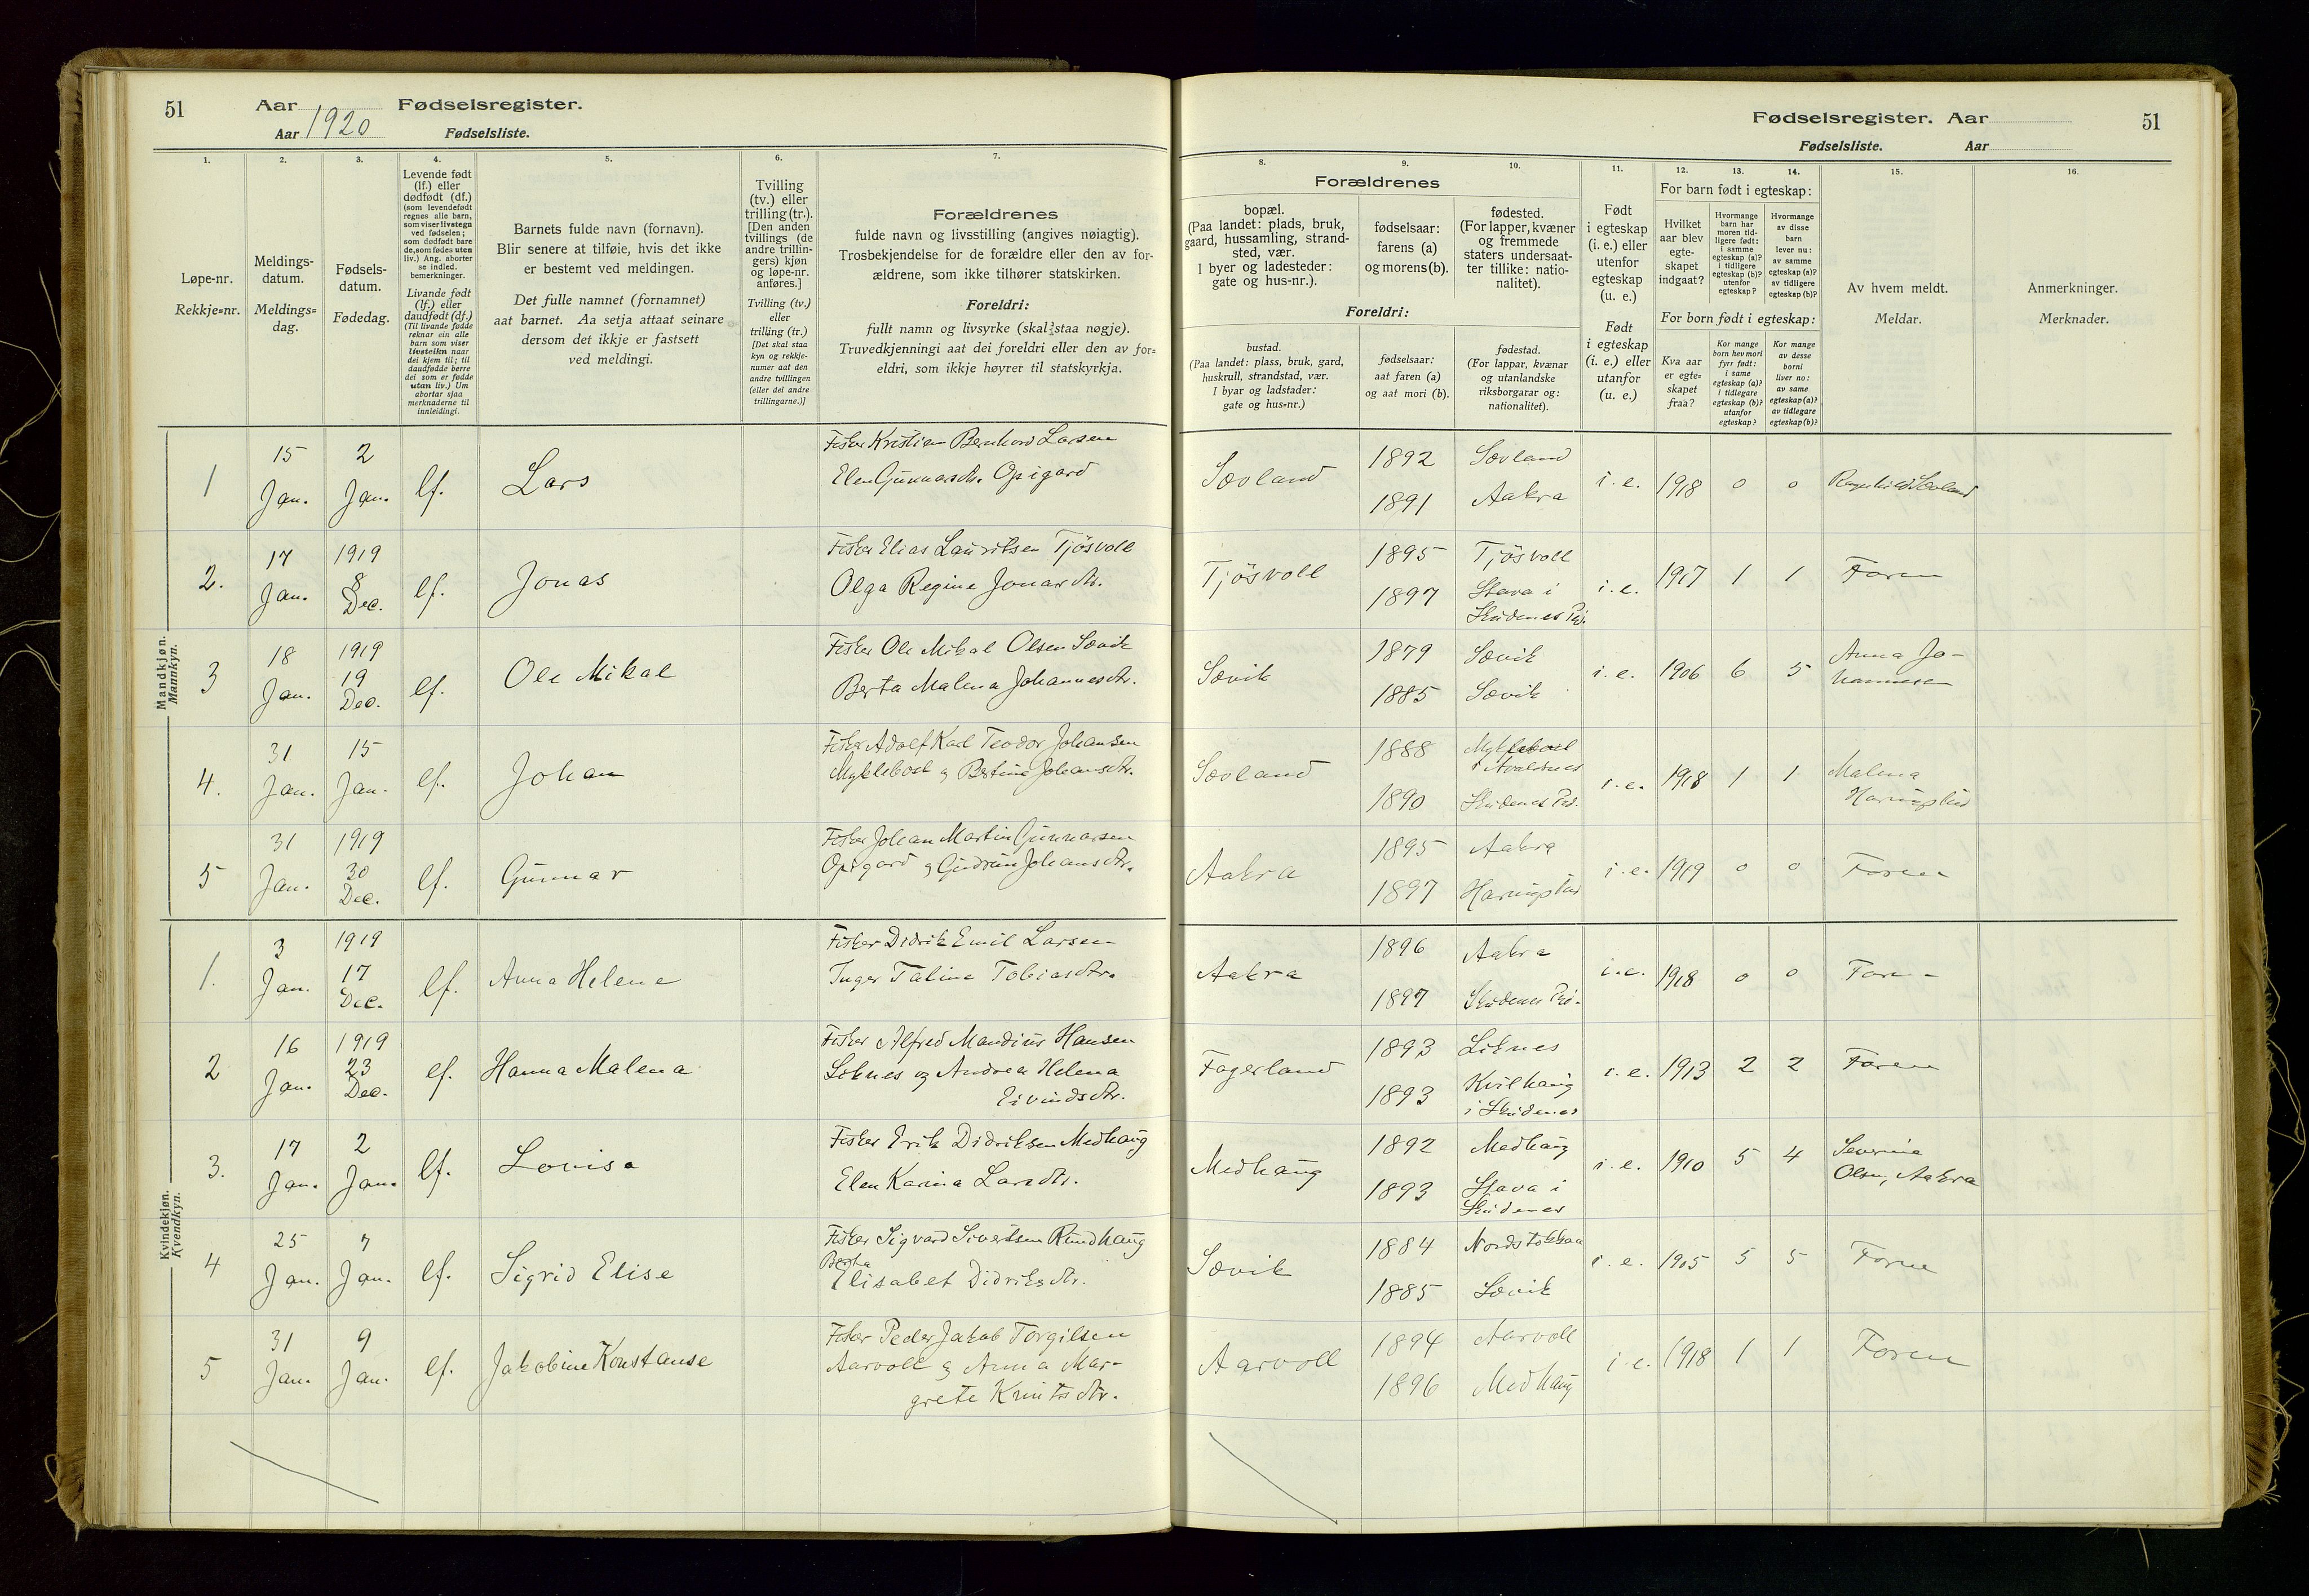 51
Aar
Aar 1920
Fødselsregister.
Fødselsliste.
1.
Løpe-nr.
Rekkje=nr.
2.
Meldings-
datum.
Meldings=
dag.
3.
Fødsels-
datum.
Fødedag.
4.
Levende født
(lf.) eller
dødfødt (df.)
(som levendefødt
regnes alle barn,
som viser livstegn
ved fødselen;
som dødfødt bare
de, som fødes uten
liv.) Ang. aborter
se indled.
bemerkninger.
Livande født
(lf.) eller
daudfødt (df.)
(Til livande fødde
reknar ein alle
barn som viser
livsteikn naar
dei kjem til; til
daudfødde berre
dei som er fødde
utan liv.) Um
abortar sjaa
merknaderne til
innleidingi.
5.
Barnets fulde navn (fornavn).
Blir senere at tilføie, hvis det ikke
er bestemt ved meldingen.
Det fulle namnet (fornamnet)
aat barnet. Aa setja attaat seinare
dersom det ikkje er fastsett
ved meldingi.
6.
Tvilling
(tv.) eller
trilling (tr.).
[Den anden
tvillings (de
andre trillin-
gers) kjøn
og løpe-nr.
anføres.]
Tvilling (tv.)
eller
trilling (tr.)
[Det skal staa
kyn og rekkje-
numer aat den
andre tvillingen
(eller dei andre
trillingarne.)]
7.
Forældrenes
fulde navn og livsstilling (angives nøiagtig).
Trosbekjendelse for de forældre eller den av for-
ældrene, som ikke tilhører statskirken.
Foreldri:
fullt namn og livsyrke (skal staa nøgje).
Truvedkjenningi aat dei foreldri eller den av for=
eldri, som ikkje høyrer til statskyrkja.
Mandkjøn.
Mannkyn.
1
15
Jan.
2
Jan.
lf.
Lars
Fisker Kristian Bernhard Larsen
Elen Gunnarsdtr. Opigard
2.
17
Jan.
1919
8
Dec.
lf.
Jonas
Fisker Elias Lauritsen Tjösvoll
Olga Regine Jonasdtr.
3
18
Jan.
1919
19
Dec.
lf.
Ole Mikal
Fisker Ole Mikal Olsen Sævik
Berta Malena Johannesdtr.
4.
31
Jan.
15
Jan.
lf.
Johan
Fisker Adolf Karl Teodor Johansen
Myklebost og Bertine Johansdtr.
5
31
Jan.
1919
30
Dec.
lf.
Gunnar
Fisker Johan Martin Gunnarsen
Opigard og Gudrun Johansdtr.
Kvindekjøn.
Kvendkyn.
1.
3
Jan.
1919
17
Dec.
lf.
Anna Helene
Fisker Didrik Emil Larsen
Inger Taline Tobiasdtr.
2
16
Jan.
1919
23
Dec.
lf.
Hanna Malena
Fisker Alfred Mandius Hansen
Liknes og Andrea Helena
Eivindsdtr.
3.
17
Jan.
2
Jan.
lf.
Lovisa
Fisker Erik Didriksen Medhaug
Elen Karina Larsdtr.
4
25
Jan.
7
Jan.
lf.
Sigrid Elise
Fisker Sigvard Sivertsen Rundhaug
Berta
Elisabet Didriksdtr.
5
31
Jan.
9
Jan.
lf.
Jakobine Konstanse
Fisker Peder Jakob Torgilsen
Aarvoll og Anna Mar-
grete Knutsdtr.
Fødselsregister. Aar
Fødselsliste. Aar
51
Forældrenes
8.
bopæl.
(Paa landet: plads, bruk,
gaard, hussamling, strand-
sted, vær.
I byer og ladesteder:
gate og hus-nr.).
9.
fødselsaar:
farens (a)
og morens (b).
10.
fødested.
(For lapper, kvæner
og fremmede
staters undersaat-
ter tillike: natio-
nalitet).
Foreldri:
bustad.
(Paa landet: plass, bruk, gard,
huskrull, strandstad, vær.
I byar og ladstader:
gate og hus=nr.)
fødselsaar:
aat faren (a)
og aat mori (b).
fødestad.
(For lappar, kvænar
og utanlandske
riksborgarar og:
nationalitet).
11.
Født
i egteskap
(i. e.) eller
utenfor
egteskap
(u. e.)
Født
i egteskap
(i. e.) eller
utanfor
(u. e.)
12.
13.
14.
For barn født i egteskap:
Hvilket
aar blev
egte-
skapet
indgaat?
Hvormange
barn har
moren tid-
ligere født:
i samme
egteskap (a)?
i tidligere
egteskap (b)?
utenfor
egteskap?
Hvormange
av disse
barn
lever nu:
av samme
egteskap (a)?
av tidligere
egteskap (b)?
For born født i egteskap:
Kva aar
er egte=
skapet
fraa?
Kor mange
born hev mori
fyrr født:
i same
egteskap (a)?
i tidlegare
egteskap (b)?
utanfor
egteskap?
Kor mange
av desse
borni
liver no:
av same
egteskap (a)?
av tidlegare
egteskap (b)?
15.
Av hvem meldt.
Meldar.
16.
Anmerkninger.
Merknader.
Sævland
1892
1891
Sævland
Aakra
i. e.
1918
0
0
Ragnhild Sævland
Tjösvoll
1895
1897
Tjösvoll
Stava i
Skudenes Prd.
i. e.
1917
1
1
Faren
Sævik
1879
1885
Sævik
Sævik
i. e.
1906
6
5
Anna Jo-
hannesen
Sævland
1888
1890
Myklebost
i Avaldsnes
Skudenes Prd.
i. e.
1918
1
1
Malena
Aakra
1895
1897
Aakra
i. e.
1919
0
0
Faren
Aakra
1896
1897
Aakra
Skudenes Prd.
i. e.
1918
0
0
Faren
Fagerland
1893
1893
Liknes
Kvilhaug
i Skudenes
i. e.
1913
2
2
Faren
Medhaug
1892
1893
Medhaug
Stava i
Skudenes
i. e.
1910
5
4
Severine
Olsen, Aakra
Sævik
1884
1885
Nordstokkan
Sævik
i. e.
1905
5
5
Faren
Aarvoll
1894
1896
Aarvoll
Medhaug
i. e.
1918
1
1
Faren